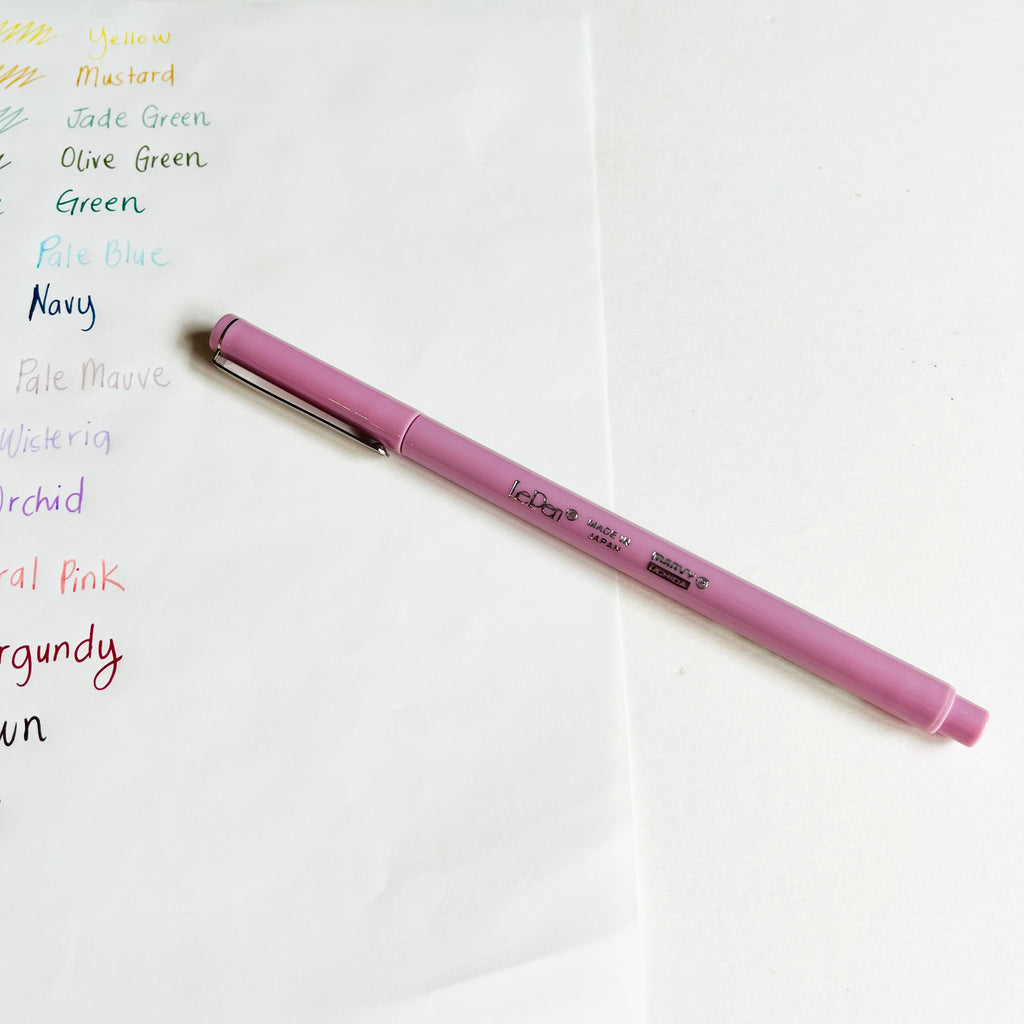 Yellow
Mustard
Jade Green
Olive Green
Green
Pale Blue
Navy
Pale Mauve
Wisteria
Orchid
ral Pink
rgundy
wn
Le Pen
MADE IN
JAPAN
MARVY
UCHIDA